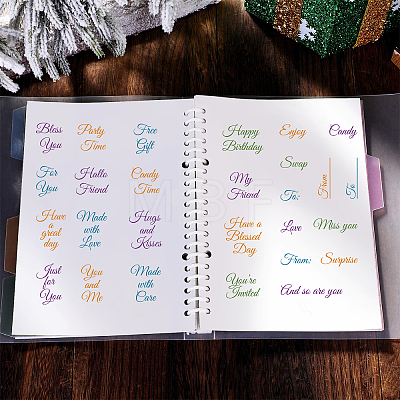 Bless
You
Party
Time
Free
Gift
For
You
Hallo
Friend
Candy
Time
Have
a
great
day
Made
with
Love
Hugs
and
Kisses
Just
for
You
You
and
Me
Made
with
Care
Happy
Birthday
Enjoy
Candy
Swap
My
Friend
To:
From
To
Have a
Blessed
Day
Love
Miss you
From:
Surprise
You're
Invited
And so are you